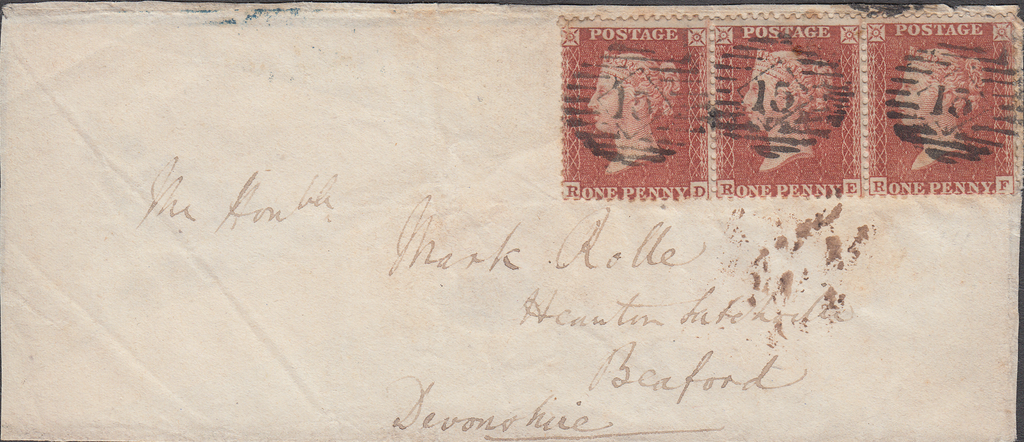 POSTAGE POSTAGE POSTAGE
15 15 15
R ONE PENNY D R ONE PENNY E R ONE PENNY F
The Honble
Mark Rolle
Heanton Satchville
Beaford
Devonshire